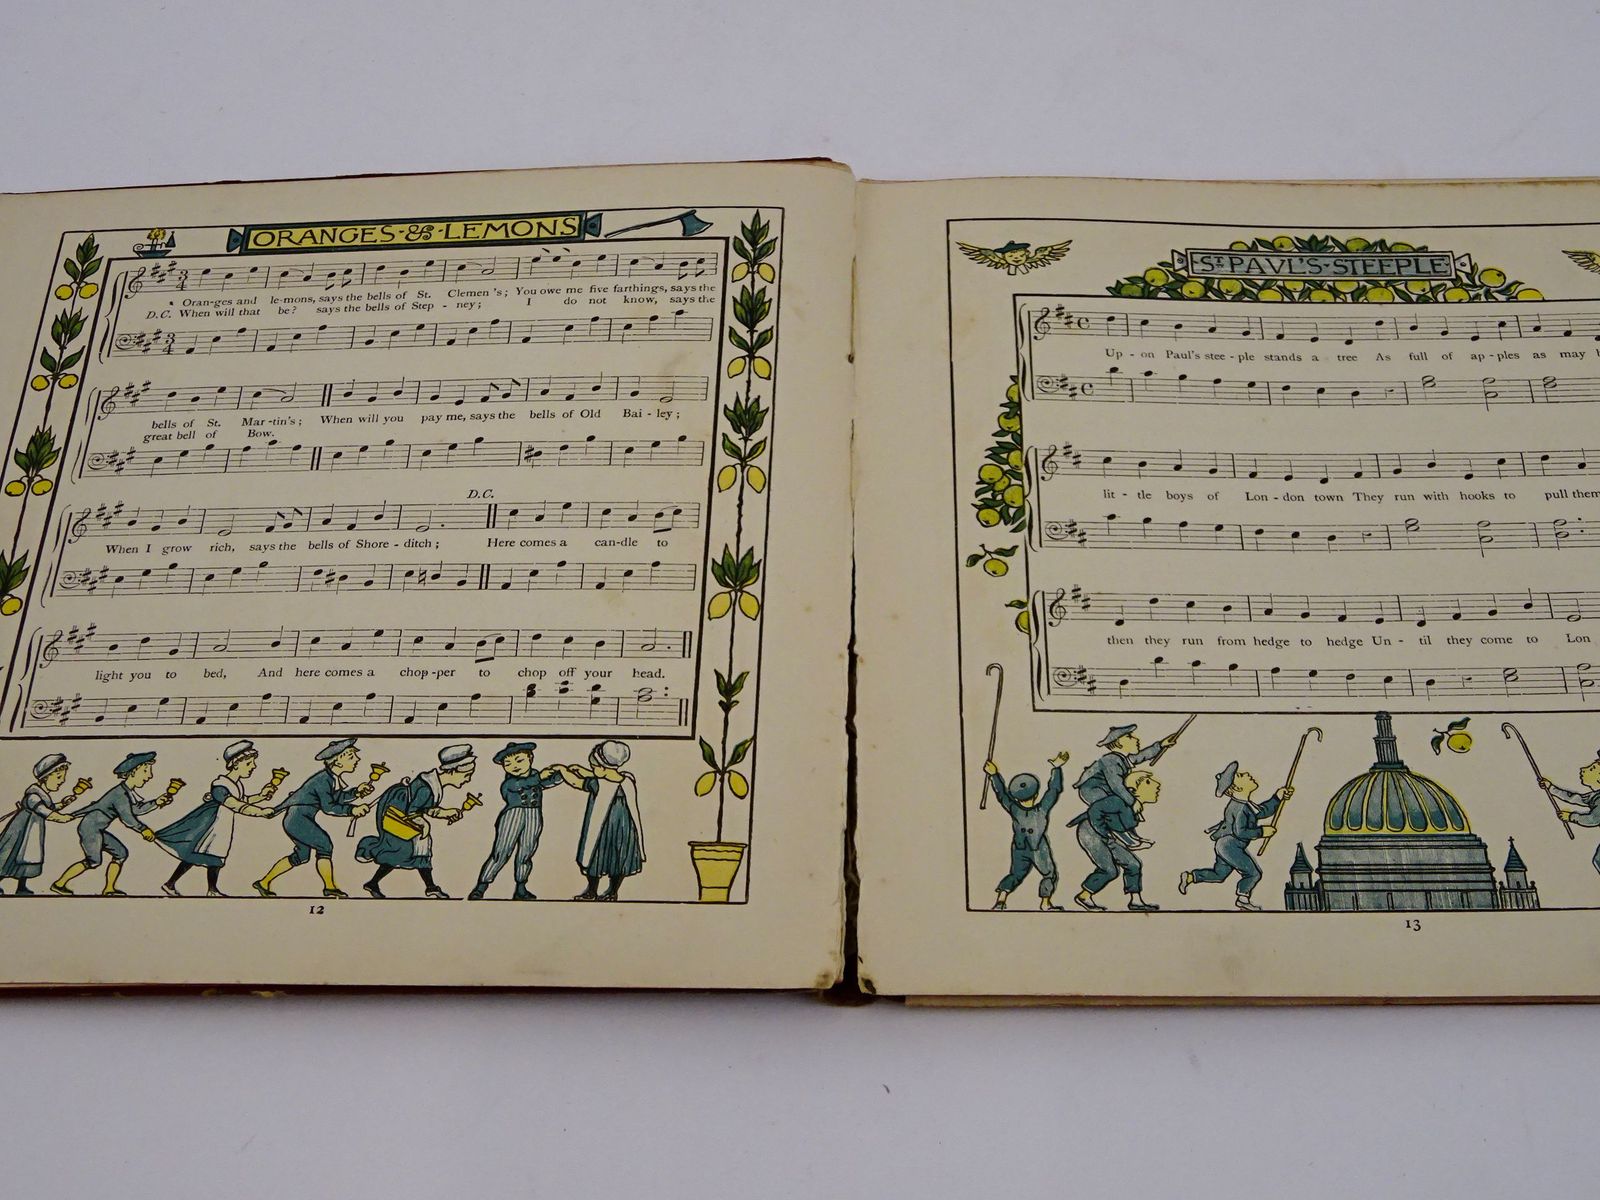 ORANGES & LEMONS
Oran-ges and le-mons, says the bells of St. Clemen's; You owe me five farthings, says the
D.C. When will that be? says the bells of Step - ney; I do not know, says the
bells of St. Mar-tin's; When will you pay me, says the bells of Old Bai - ley;
great bell of Bow.
D.C.
When I grow rich, says the bells of Shore - ditch; Here comes a can-dle to
light you to bed, And here comes a chop-per to chop off your head.
12
ST PAVL'S STEEPLE
Up - on Paul's stee - ple stands a tree As full of ap - ples as may
lit - tle boys of Lon - don town They run with hooks to pull them
then they run from hedge to hedge Un - til they come to Lon
13